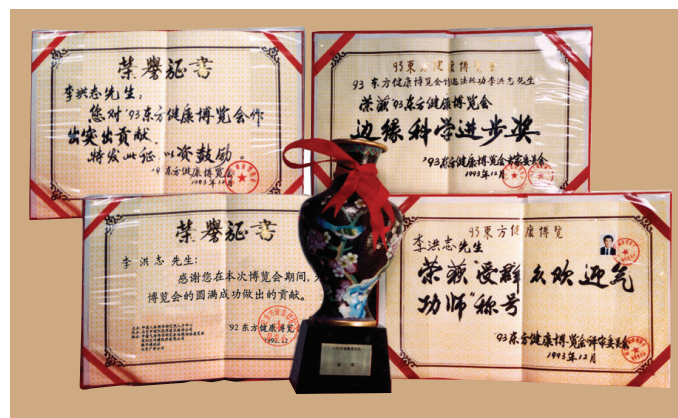 荣誉证书
李洪志先生：
您对'93东方健康博览会作
出突出贡献。
特发此证以资鼓励。
东方健康博览会
1993年12月
93東方健康博览会
荣获'93东方健康博览会
边缘科学进步奖
'93东方健康博览会专家委员会
1993年12月
荣誉证书
李洪志先生：
感谢您在本次博览会期间，
博览会的圆满成功做出的贡献。
'92东方健康博览会
93東方健康博览
李洪志先生
荣获"受群众欢迎气
功师"称号
'93东方健康博览会评审委员会
1993年12月